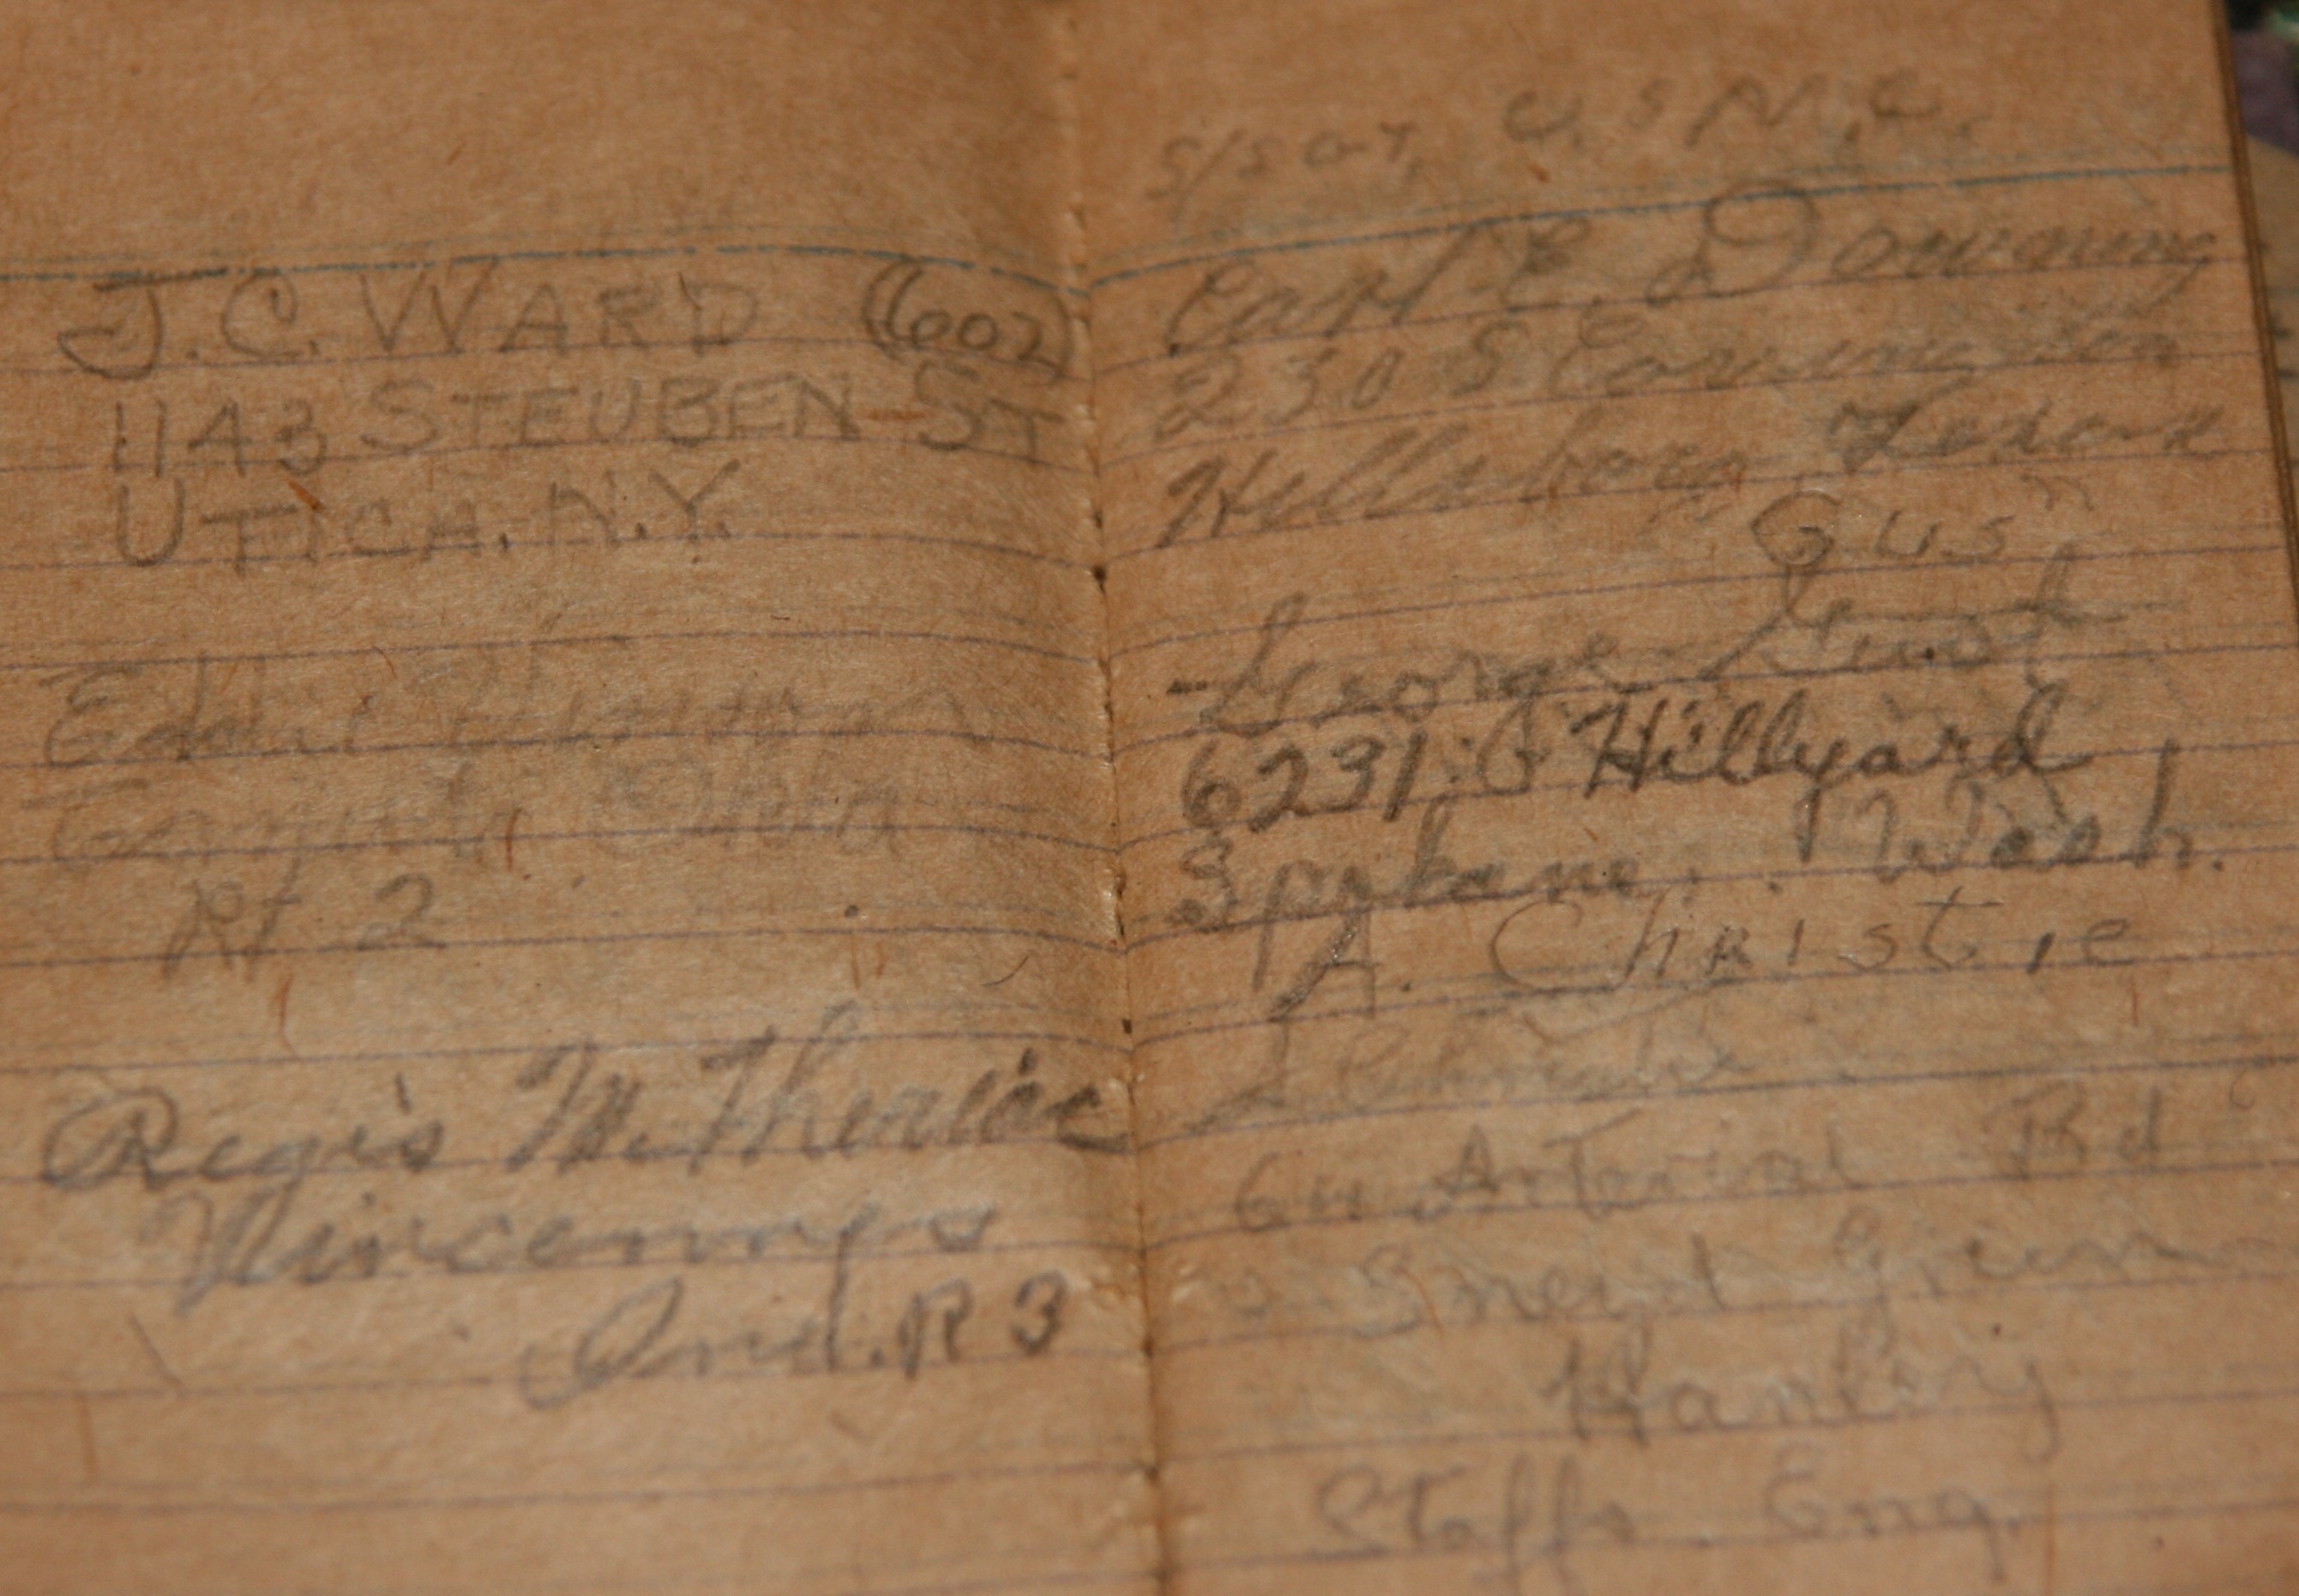 J.C. WARD (602)
1143 STEUBEN ST
UTICA. N.Y.
Eddie
Okla
Rt 2
Regis M. Theriac
Vincennes
Ind. R 3
S/SGT. U.S M.C.
Earl E. Downing
230 S. Covington
Hillsboro Texas
"Gus"
George Gust
6231. Hillyard
Spokane, Wash.
A. Christie
64 Arterial Rd
Sneyd Green
Hanley
Staffs Eng.